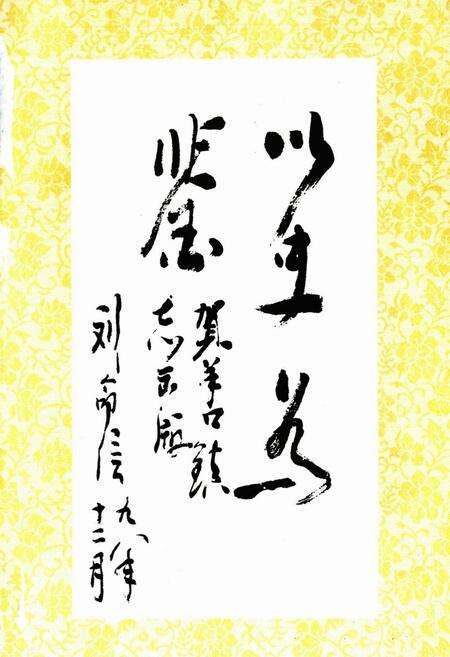 以史为
鉴
贺羊口镇
志出版
刘命信
九八年
十二月